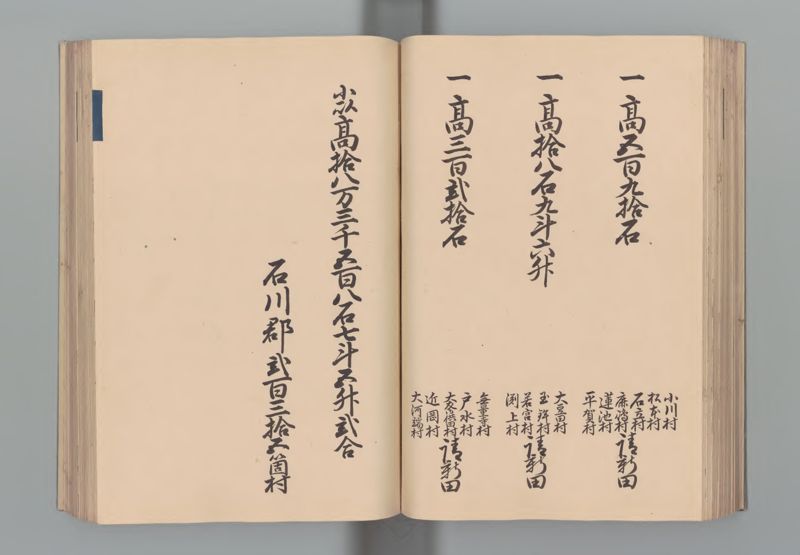 一 高五百九拾石
小川村
松本村
石立村
蓮池村
平賀村
請新田
一 高拾八石九斗六升
大豆田村
玉鉾村
若宮村
渕上村
請新田
一 高三百弐拾石
無量寺村
戸水村
近岡村
大河端村
請新田
小以高拾八万三千五百八石七斗五升弐合
石川郡弐百三拾五箇村